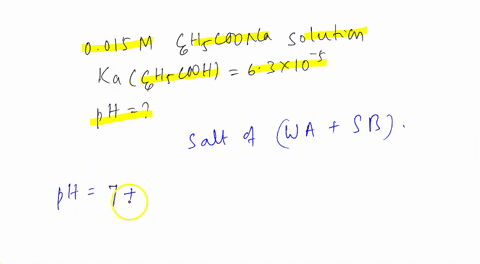 0.015 M C6H5COONa solution
Ka (C6H5COOH) = 6.3×10⁻⁵
pH = ?
salt of (WA + SB).
pH = 7 +